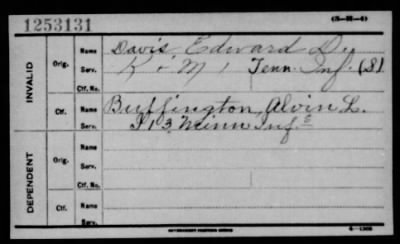 1253131
(3-M-4)
INVALID
Orig.
Name
Davis Edward D.
Serv.
K & M 1 Tenn. Inf. (S)
Ctf. No.
Ctf.
Name
Buffington, Alvin L.
Serv.
I 13 Minn Inf
DEPENDENT
Orig.
Name
Serv.
Ctf. No.
Ctf.
Name
Serv.
GOVERNMENT PRINTING OFFICE